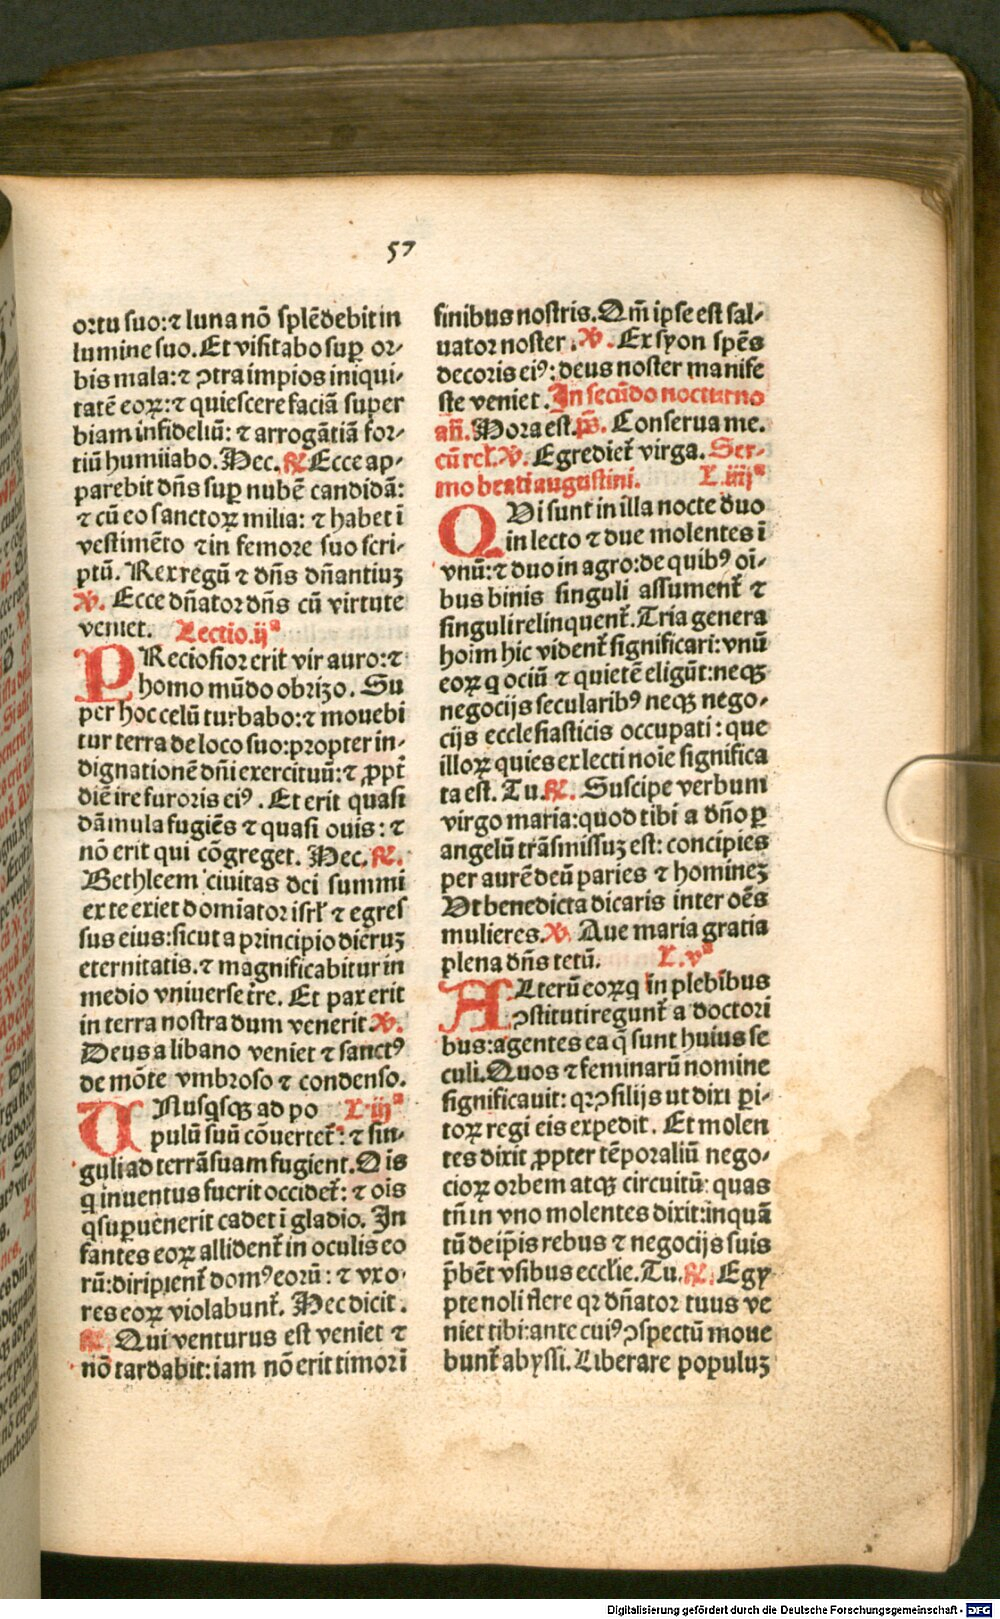 57
ortu suo:⁊ luna nō splēdebit in
lumine suo. Et visitabo sup̱ or-
bis mala:⁊ ꝯtra impios iniqui-
tatē eoꝝ:⁊ quiescere faciā super
biam infideliū: ⁊ arrogātiā for-
tiū humiliabo. Hec. ℟ Ecce ap-
parebit dn̄s sup̱ nubē candidā:
⁊ cū eo sanctoꝝ milia: ⁊ habet ī
vestimēto ⁊ in femore suo scri-
ptū. Rex regū ⁊ dn̄s dn̄antiuꝫ
℣. Ecce dn̄ator dn̄s cū virtute
veniet. Lectio.ijᵃ
PReciosior erit vir auro:⁊
homo mūdo obrizo. Su
per hoc celū turbabo:⁊ mouebi
tur terra de loco suo:propter in-
dignationē dn̄i exercituū:⁊ ꝓpt̄
diē ire furoris eiꝰ. Et erit quasi
dāmula fugiēs ⁊ quasi ouis: ⁊
nō erit qui cōgreget. Hec. ℟.
Bethleem ciuitas dei summi
ex te exiet domīator isrl̄ ⁊ egres
sus eius:sicut a principio dieruꝫ
eternitatis.⁊ magnificabitur in
medio vniuerse tr̄e. Et pax erit
in terra nostra dum venerit. ℣.
Deus a libano veniet ⁊ sanctꝰ
de mōte vmbroso ⁊ condenso.
VNusq̄sqꝫ ad po L.iijᵃ
pulū suū cōuertet̄: ⁊ sin-
guli ad terrā suam fugient. Oīs
q̄ inuentus fuerit occidet̄: ⁊ oīs
q̄ sup̱uenerit cadet ī gladio. In
fantes eoꝝ allident̄ in oculis eo
rū:diripient̄ domꝰ eorū: ⁊ vxo-
res eoꝝ violabunt̄. Hec dicit.
℟. Qui venturus est veniet ⁊
nō tardabit:iam nō erit timor ī
finibus nostris. Qm̄ ipse est sal-
uator noster. ℣. Ex syon spēs
decoris eiꝰ: deus noster manife
ste veniet. In secūdo nocturno
añ. Hora est. ps̄. Conserua me.
cū rel̄. ℣. Egrediet̄ virga. Ser-
mo beati augustini. L.iiijᵃ
QVi sunt in illa nocte duo
in lecto ⁊ due molentes ī
vnū:⁊ duo in agro:de quibꝰ oī-
bus binis singuli assument̄ ⁊
singuli relinquent̄. Tria genera
hoīm hic vident̄ significari: vnū
eoꝝ q̄ ociū ⁊ quietē eligūt:neqꝫ
negocijs secularibꝰ neqꝫ nego-
cijs ecclesiasticis occupati: que
illoꝝ quies ex lecti noīe significa
ta est. Tu. ℟. Suscipe verbum
virgo maria:quod tibi a dn̄o p̱
angelū trāsmissuꝫ est: concipies
per aurē deū paries ⁊ homineꝫ
Vt benedicta dicaris inter oēs
mulieres. ℣. Aue maria gratia
plena dn̄s tecū. L.vᵃ
ALterū eoꝝ q̄ in plebibus
ꝯstituti regunt̄ a doctori
bus:agentes ea q̄ sunt huius se
culi. Quos ⁊ feminarū nomine
significauit: qꝛ ꝯsilijs ut dixi p̱i-
toꝝ regi eis expedit. Et molen
tes dixit ꝓpter tēporaliū nego-
cioꝝ orbem atqꝫ circuitū: quas
tn̄ in vno molentes dixit:inquā
tū de ip̄is rebus ⁊ negocijs suis
p̄bēt vsibus eccl̄ie. Tu. ℟. Egy
pte noli flere qꝛ dn̄ator tuus ve
niet tibi:ante cuiꝰ ꝯspectū moue
bunt̄ abyssi. Liberare populuꝫ
Digitalisierung gefördert durch die Deutsche Forschungsgemeinschaft - DFG